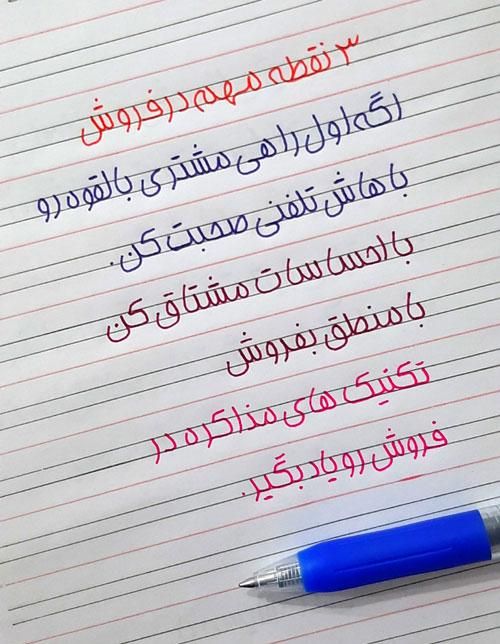 ۳ نقطه مهم در فروش
اگه اول راهی مشتری بالقوه رو
باهاش تلفنی صحبت کن.
با احساسات مشتاق کن
با منطق بفروش
تکنیک های مذاکره در
فروش رو یاد بگیر.